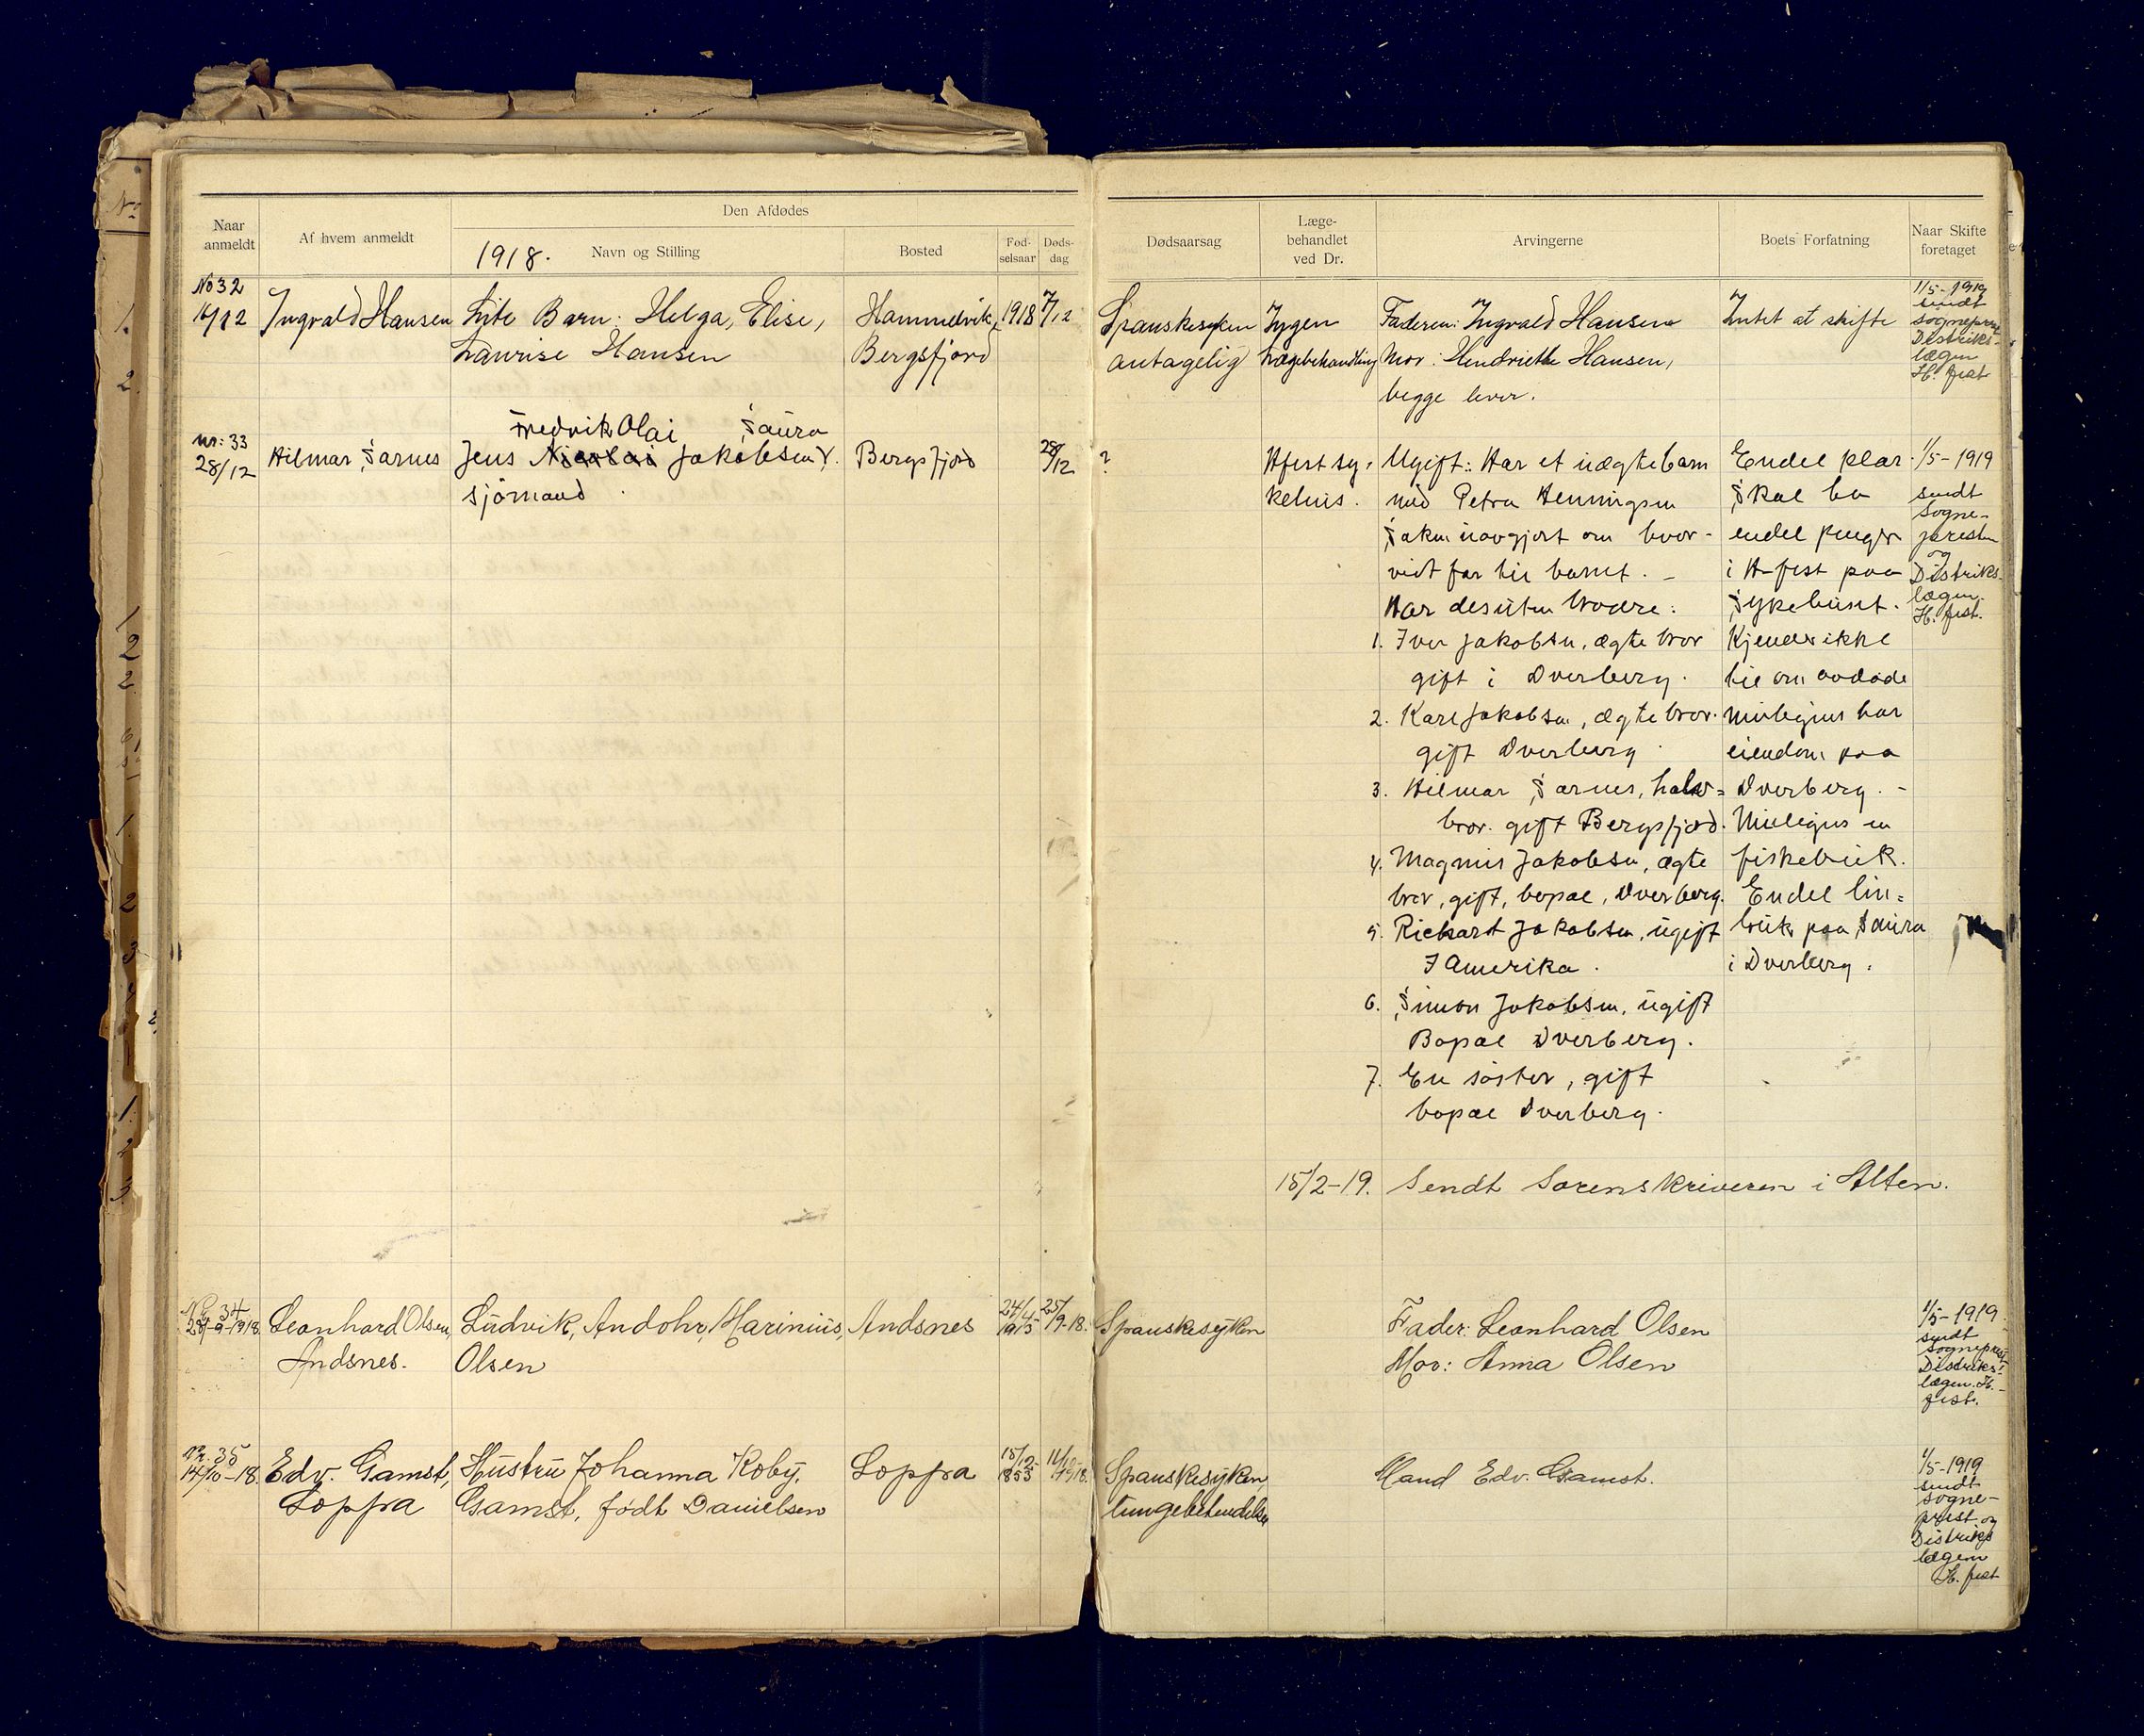 Naar anmeldt
Af hvem anmeldt
Den Afdødes
1918. Navn og Stilling
Bosted
Fød-selsaar
Døds-dag
Dødsaarsag
Læge-behandlet ved Dr.
Arvingerne
Boets Forfatning
Naar Skifte foretaget
No 32
16/12
Ingvald Hansen
Lite Barn: Helga, Elise,
Laurise Hansen
Hammelvik,
Bergsfjord
1918
7/12
Spanskesyken
antagelig
Ingen
Lægebehandling
Faderen: Ingvald Hansen
Mor: Hendriette Hansen,
begge lever.
Intet at skifte
1/5-1919
sendt
sogneprest
Distriks-
lægen
H. fest
nr: 33
28/12
Hilmar Sarnes
Fredrik Olai Saura
Jens Nicolai Jakobsen
sjömand
Bergsfjord
28/12
?
Hfest sy-
kehus.
Ugift: Har et uægte barn
med Petra Henningsen
Saken uavgjort om hvor-
vidt far til barnet. -
Har desuten brødre:
1. Iver Jakobsen, ægte bror
gift i Dverberg.
2. Karl Jakobsen, ægte bror.
gift Dverberg
3. Hilmar Sarnes, halv=
bror. gift Bergsfjord.
4. Magnus Jakobsen, ægte
bror, gift, bopæl, Dverberg.
5. Rickart Jakobsen, ugift
I Amerika.
6. Simon Jakobsen, ugift
Bopæl Dverberg.
7. En søster, gift
bopæl Dverberg.
Endel klær.
Skal ha
endel penger
i H-fest paa
Sykehuset.
Kjender ikke
til om avdøde
muligens har
eiendom paa
Dverberg. -
Muligens en
fiskebruk.
Endel lin=
bruk paa Saura
i Dverberg.
1/5-1919
sendt
Sogne-
presten
og
Distriks-
lægen.
H. fest.
15/2-19. Sendt Sorenskriveren i Alten.
Nr 34
Leonhard Olsen,
Andsnes.
Ludvik, Andohr, Marinius,
Olsen
Andsnes
24/4
1915
25/9-18.
Spanskesyken
Fader: Leonhard Olsen
Mor: Anna Olsen
1/5-1919
sendt
sogneprest
Distriks-
lægen. H.-
fest.
Nr. 35
14/10-18.
Edv. Gamst,
Loppa
Hustru Johanna Koby,
Gamst, født Danielsen
Loppa
15/12-
1853
11/10-
1918.
Spanskesyken,
lungebetendelse
Mand Edv. Gamst.
1/5-1919
sendt
sogne-
prest og
Distriks
lægen
H. fest